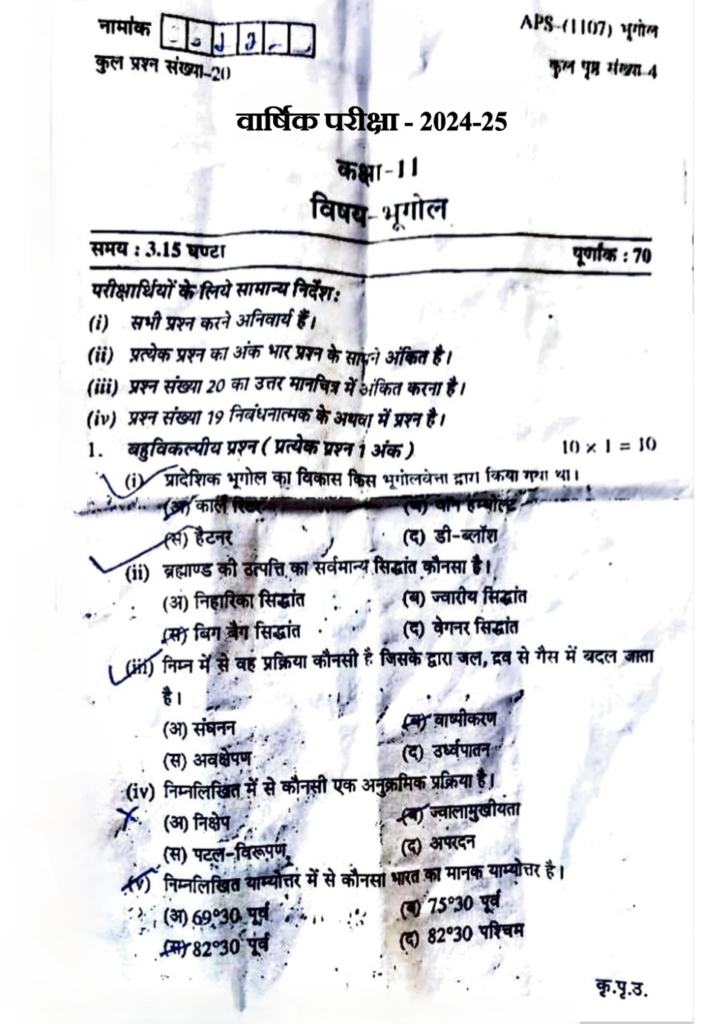 नामांक
APS-(1107) भूगोल
कुल प्रश्न संख्या-20
कुल पृष्ठ संख्या-4
वार्षिक परीक्षा - 2024-25
कक्षा-11
विषय-भूगोल
समय : 3.15 घण्टा पूर्णांक : 70
परीक्षार्थियों के लिये सामान्य निर्देश:
(i) सभी प्रश्न करने अनिवार्य हैं।
(ii) प्रत्येक प्रश्न का अंक भार प्रश्न के सामने अंकित है।
(iii) प्रश्न संख्या 20 का उत्तर मानचित्र में अंकित करना है।
(iv) प्रश्न संख्या 19 निबंधनात्मक के अथवा में प्रश्न है।
1. बहुविकल्पीय प्रश्न ( प्रत्येक प्रश्न 1 अंक ) 10 × 1 = 10
(i) प्रादेशिक भूगोल का विकास किस भूगोलवेत्ता द्वारा किया गया था।
(अ) कार्ल रिटर (ब) वॉन हम्बोल्ट
(स) हैटनर (द) डी-ब्लॉश
(ii) ब्रह्माण्ड की उत्पत्ति का सर्वमान्य सिद्धांत कौनसा है।
(अ) निहारिका सिद्धांत (ब) ज्वारीय सिद्धांत
(स) बिग बैंग सिद्धांत (द) वेगनर सिद्धांत
(iii) निम्न में से वह प्रक्रिया कौनसी है जिसके द्वारा जल, द्रव से गैस में बदल जाता
है।
(अ) संघनन (ब) वाष्पीकरण
(स) अवक्षेपण (द) उर्ध्वपातन
(iv) निम्नलिखित में से कौनसी एक अनुक्रमिक प्रक्रिया है।
(अ) निक्षेप (ब) ज्वालामुखीयता
(स) पटल-विरूपण (द) अपरदन
(v) निम्नलिखित याम्योत्तर में से कौनसा भारत का मानक याम्योत्तर है।
(अ) 69°30 पूर्व (ब) 75°30 पूर्व
(स) 82°30 पूर्व (द) 82°30 पश्चिम
कृ.पृ.उ.